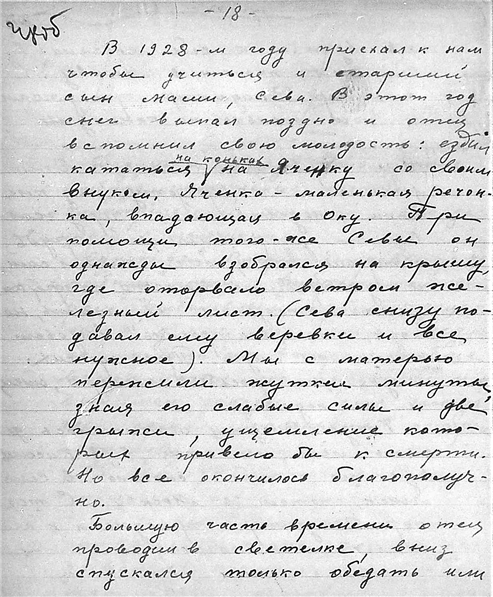 - 18 -
В 1928-м году приехал к нам
чтобы учиться и старший
сын Маши, Сева. В этот год
снег выпал поздно и отец
вспомнил свою молодость: ездил
кататься на коньках на Яченку со своим
внуком. Яченка - маленькая речон-
ка, впадающая в Оку. При
помощи того-же Севы он
однажды взобрался на крышу,
где оторвало ветром же-
лезный лист. (Сева снизу по-
давал ему веревки и все
нужное). Мы с матерью
пережили жуткия минуты,
зная его слабые силы и две
грыжи, ущемление кото-
рых привело бы к смерти.
Но все окончилось благополуч-
но.
Большую часть времени отец
проводил в светелке, вниз
спускался только обедать или